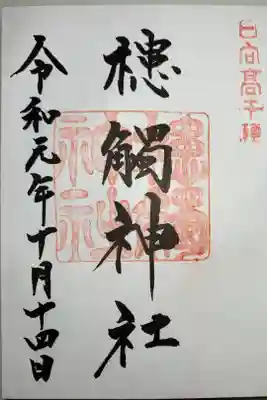 日向高千穂
槵觸神社
令和元年十月十四日